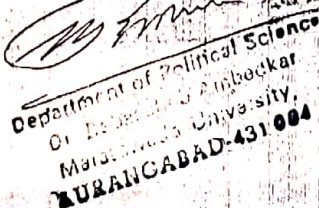 Department of Political Science
Dr. Babasaheb Ambedkar
Marathwada University,
AURANGABAD-431 004